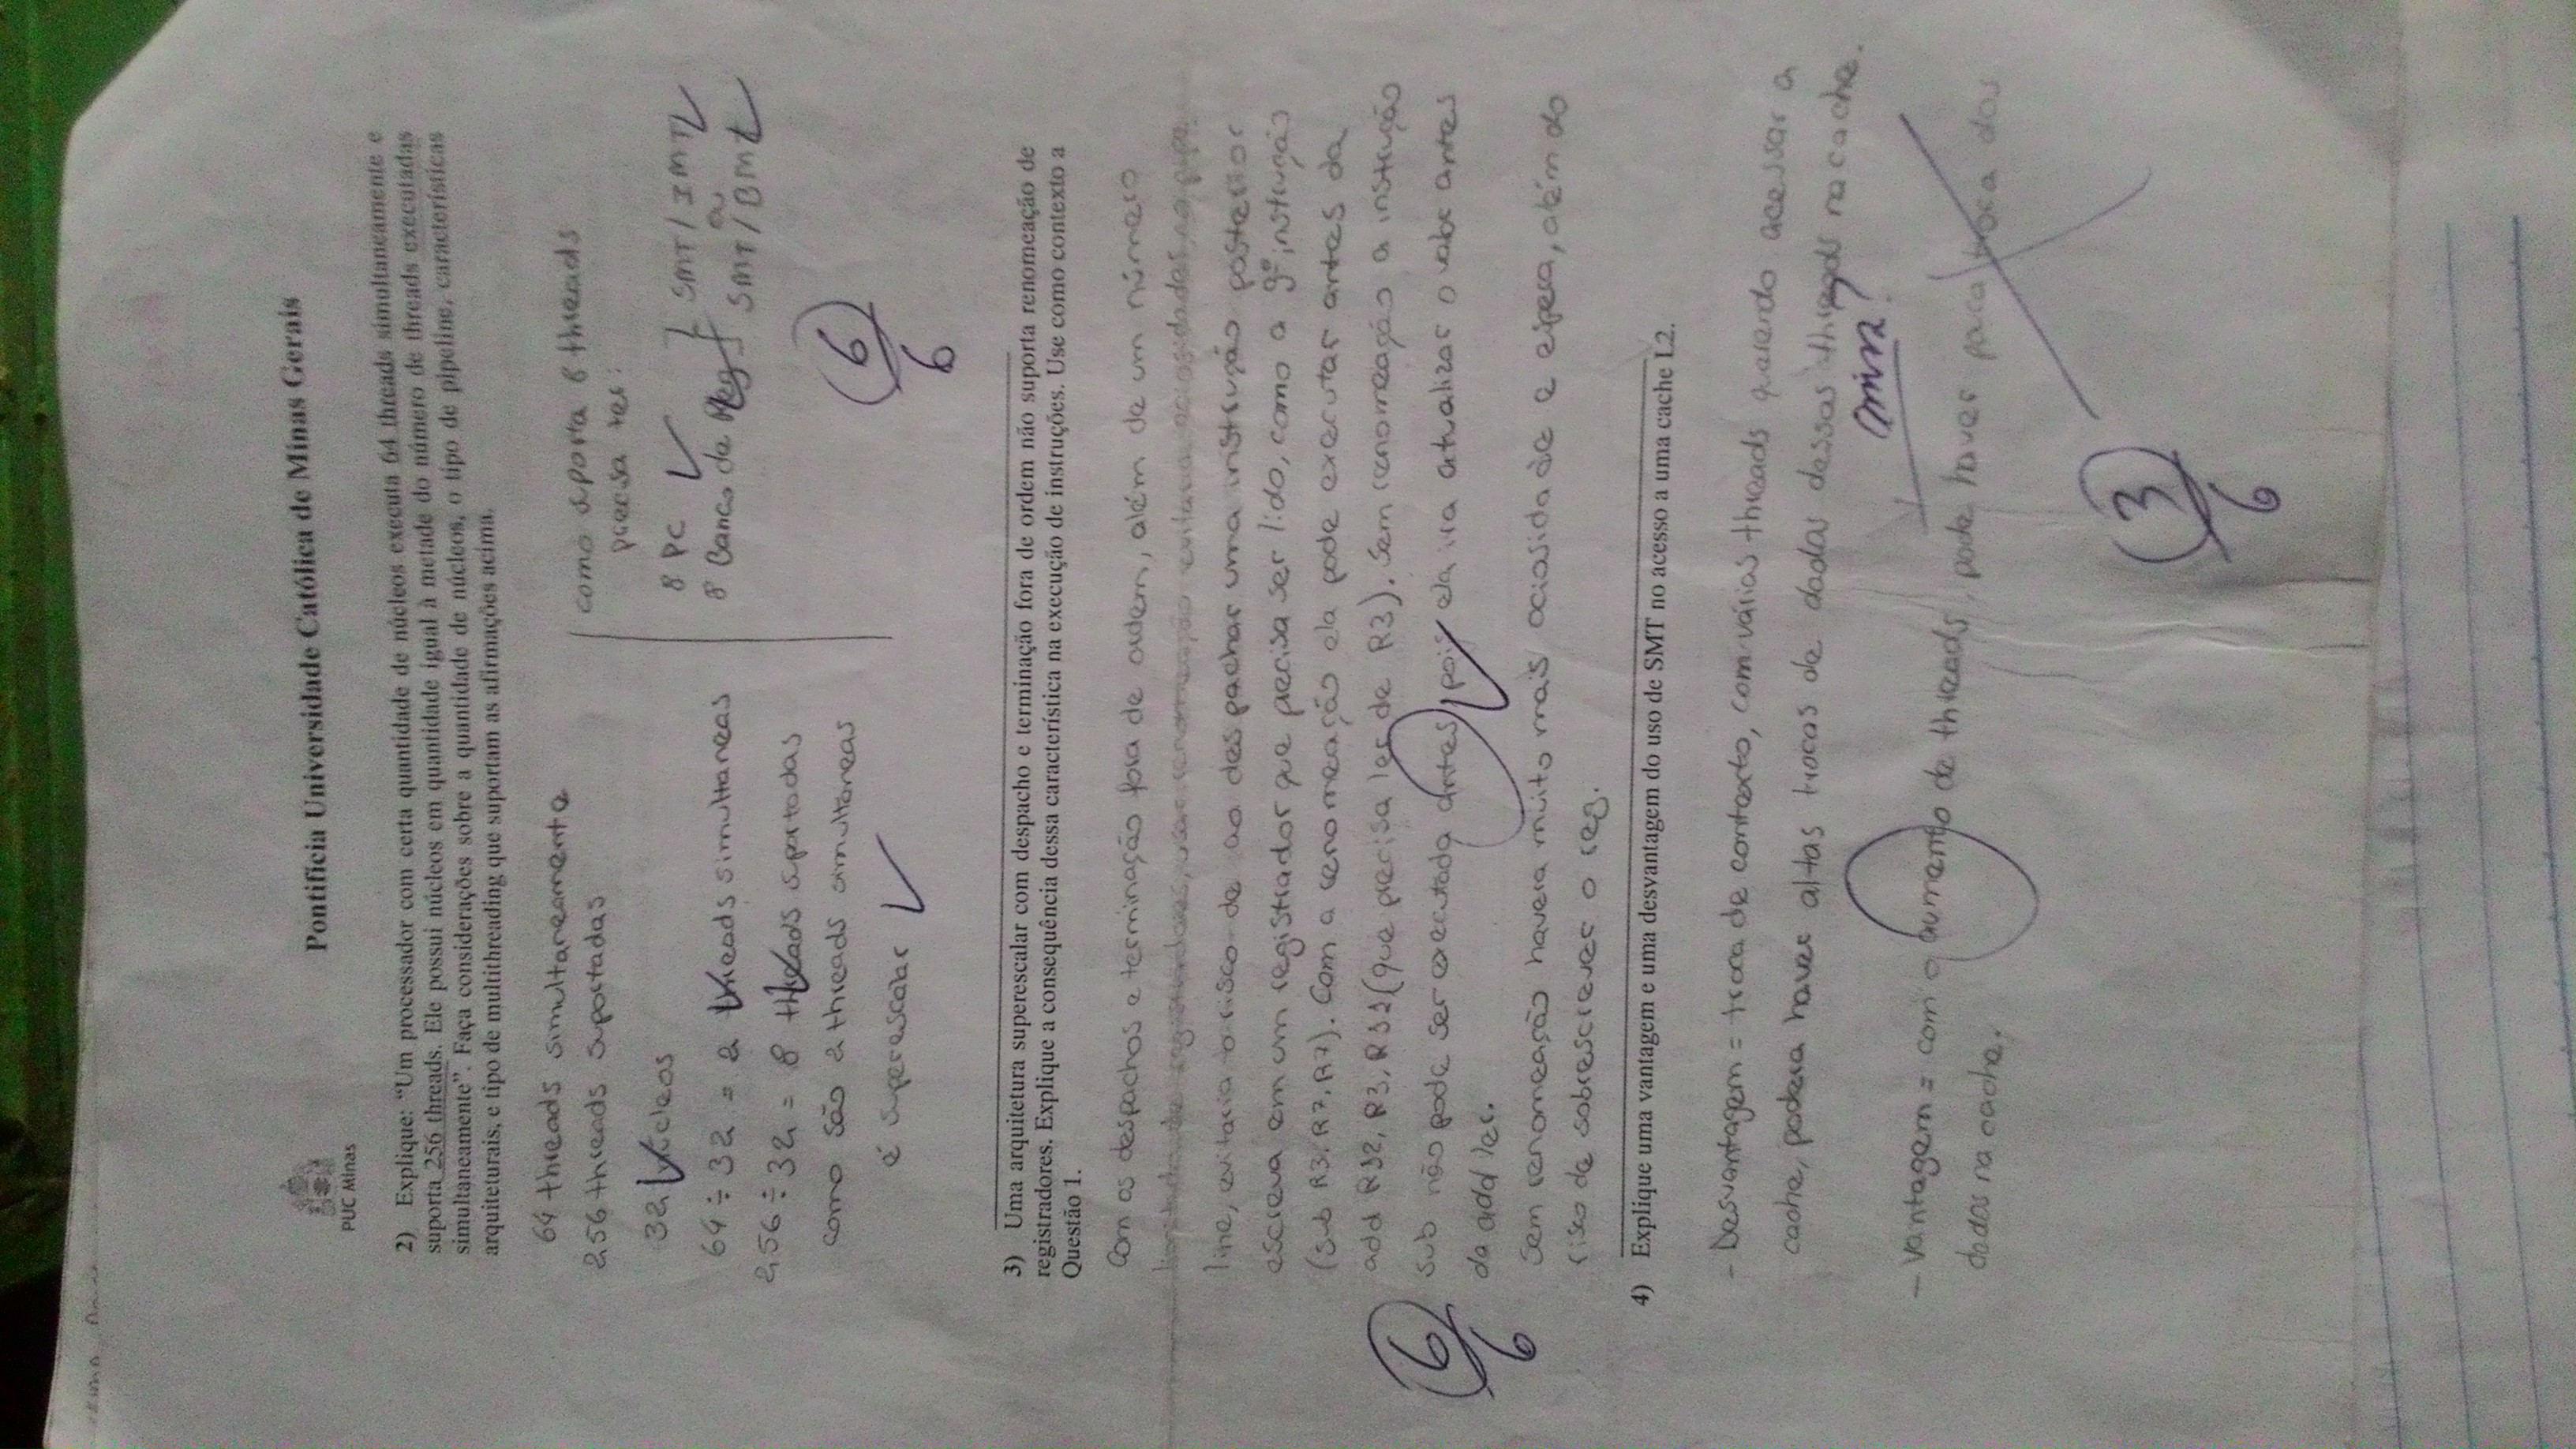 PUC Minas
Pontifícia Universidade Católica de Minas Gerais
2) Explique: “Um processador com certa quantidade de núcleos executa 64 threads simultaneamente e
suporta 256 threads. Ele possui núcleos em quantidade igual à metade do número de threads executadas
simultaneamente”. Faça considerações sobre a quantidade de núcleos, o tipo de pipeline, características
arquiteturais, e tipo de multithreading que suportam as afirmações acima.
64 threads simultaneamente
256 threads suportadas
32 núcleos
64 ÷ 32 = 2 threads simultaneas
256 ÷ 32 = 8 threads suportadas
como são 2 threads simultaneas
é superescalar
como suporta 8 threads
precisa ter:
8 PC
8 Banco de Reg
SMT / IMT
ou
SMT / BMT
6
6
3) Uma arquitetura superescalar com despacho e terminação fora de ordem não suporta renomeação de
registradores. Explique a consequência dessa característica na execução de instruções. Use como contexto a
Questão 1.
Com os despachos e terminação fora de ordem, além de um número
limitado de registradores, usar renomeação evitaria ociosidades no pipe
line, evitaria o risco de ao despachar uma instrução posterior
escreva em um registrador que precisa ser lido, como a 9ª instrução
(sub R3, R7, R7). Com a renomeação ela pode executar antes da
add R12, R3, R11 (que precisa ler de R3). Sem renomeação a instrução
sub não pode ser executada antes, pois ela ira atualizar o valor antes
da add ler.
Sem renomeação havera muito mais ociosidade e espera, além do
risco de sobrescrever o reg.
6
6
4) Explique uma vantagem e uma desvantagem do uso de SMT no acesso a uma cache L2.
- Desvantagem = troca de contexto, com várias threads querendo acessar a
cache, podera haver altas trocas de dados dessas threads na cache.
- Vantagem = com o aumento de threads, pode haver para troca dos
dados na cache.
3
6